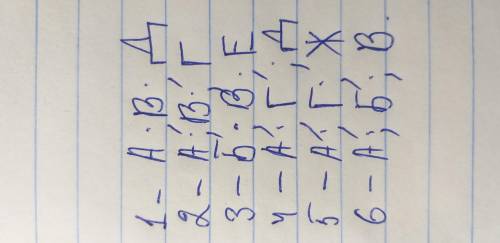 1 - А. В. Д
2 - А, В, Г
3 - Б. В. Е
4 - А, Г, Д
5 - А, Г, Ж
6 - А, Б, В.